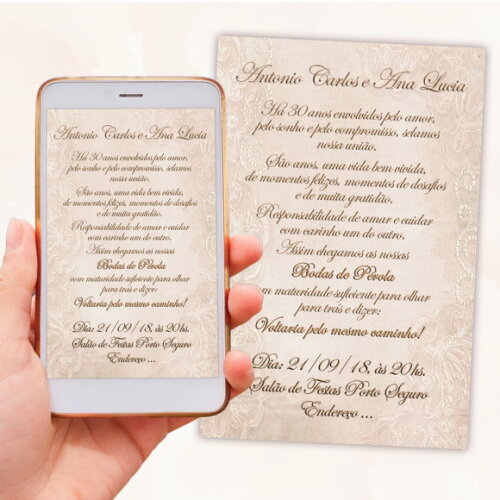 Antonio Carlos e Ana Lucia
Há 30 anos envolvidos pelo amor,
pelo sonho e pelo compromisso, selamos
nossa união.
São anos, uma vida bem vivida,
de momentos felizes, momentos de desafios
e de muita gratidão.
Responsabilidade de amar e cuidar
com carinho um do outro.
Assim chegamos as nossas
Bodas de Pérola
com maturidade suficiente para olhar
para trás e dizer:
Voltaria pelo mesmo caminho!
Dia: 21/09/18, às 20hs.
Salão de Festas Porto Seguro
Endereço ...
Antonio Carlos e Ana Lucia
Há 30 anos envolvidos pelo amor,
pelo sonho e pelo compromisso, selamos
nossa união.
São anos, uma vida bem vivida,
de momentos felizes, momentos de desafios
e de muita gratidão.
Responsabilidade de amar e cuidar
com carinho um do outro.
Assim chegamos as nossas
Bodas de Pérola
com maturidade suficiente para olhar
para trás e dizer:
Voltaria pelo mesmo caminho!
Dia: 21/09/18, às 20hs.
Salão de Festas Porto Seguro
Endereço ...